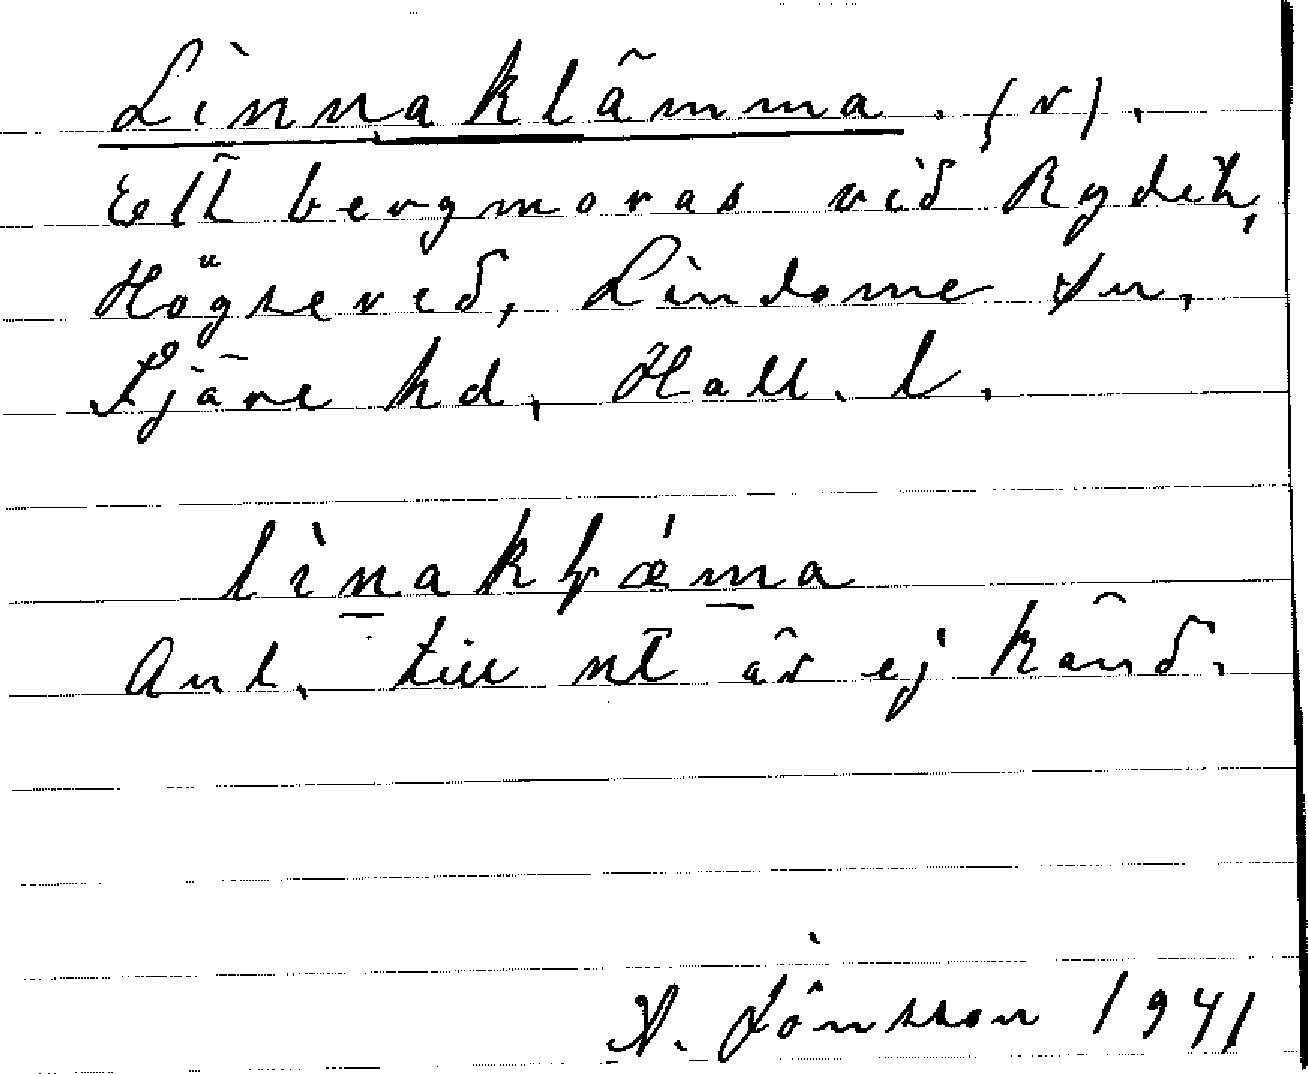 Linnaklämma. (r).
Ett bergmoras vid Rydet,
Högsered, Lindome sn,
Fjäre hd, Hall. l.
lìnakl̥ǽma
Anl. till nt är ej känd.
A. Jönsson 1941